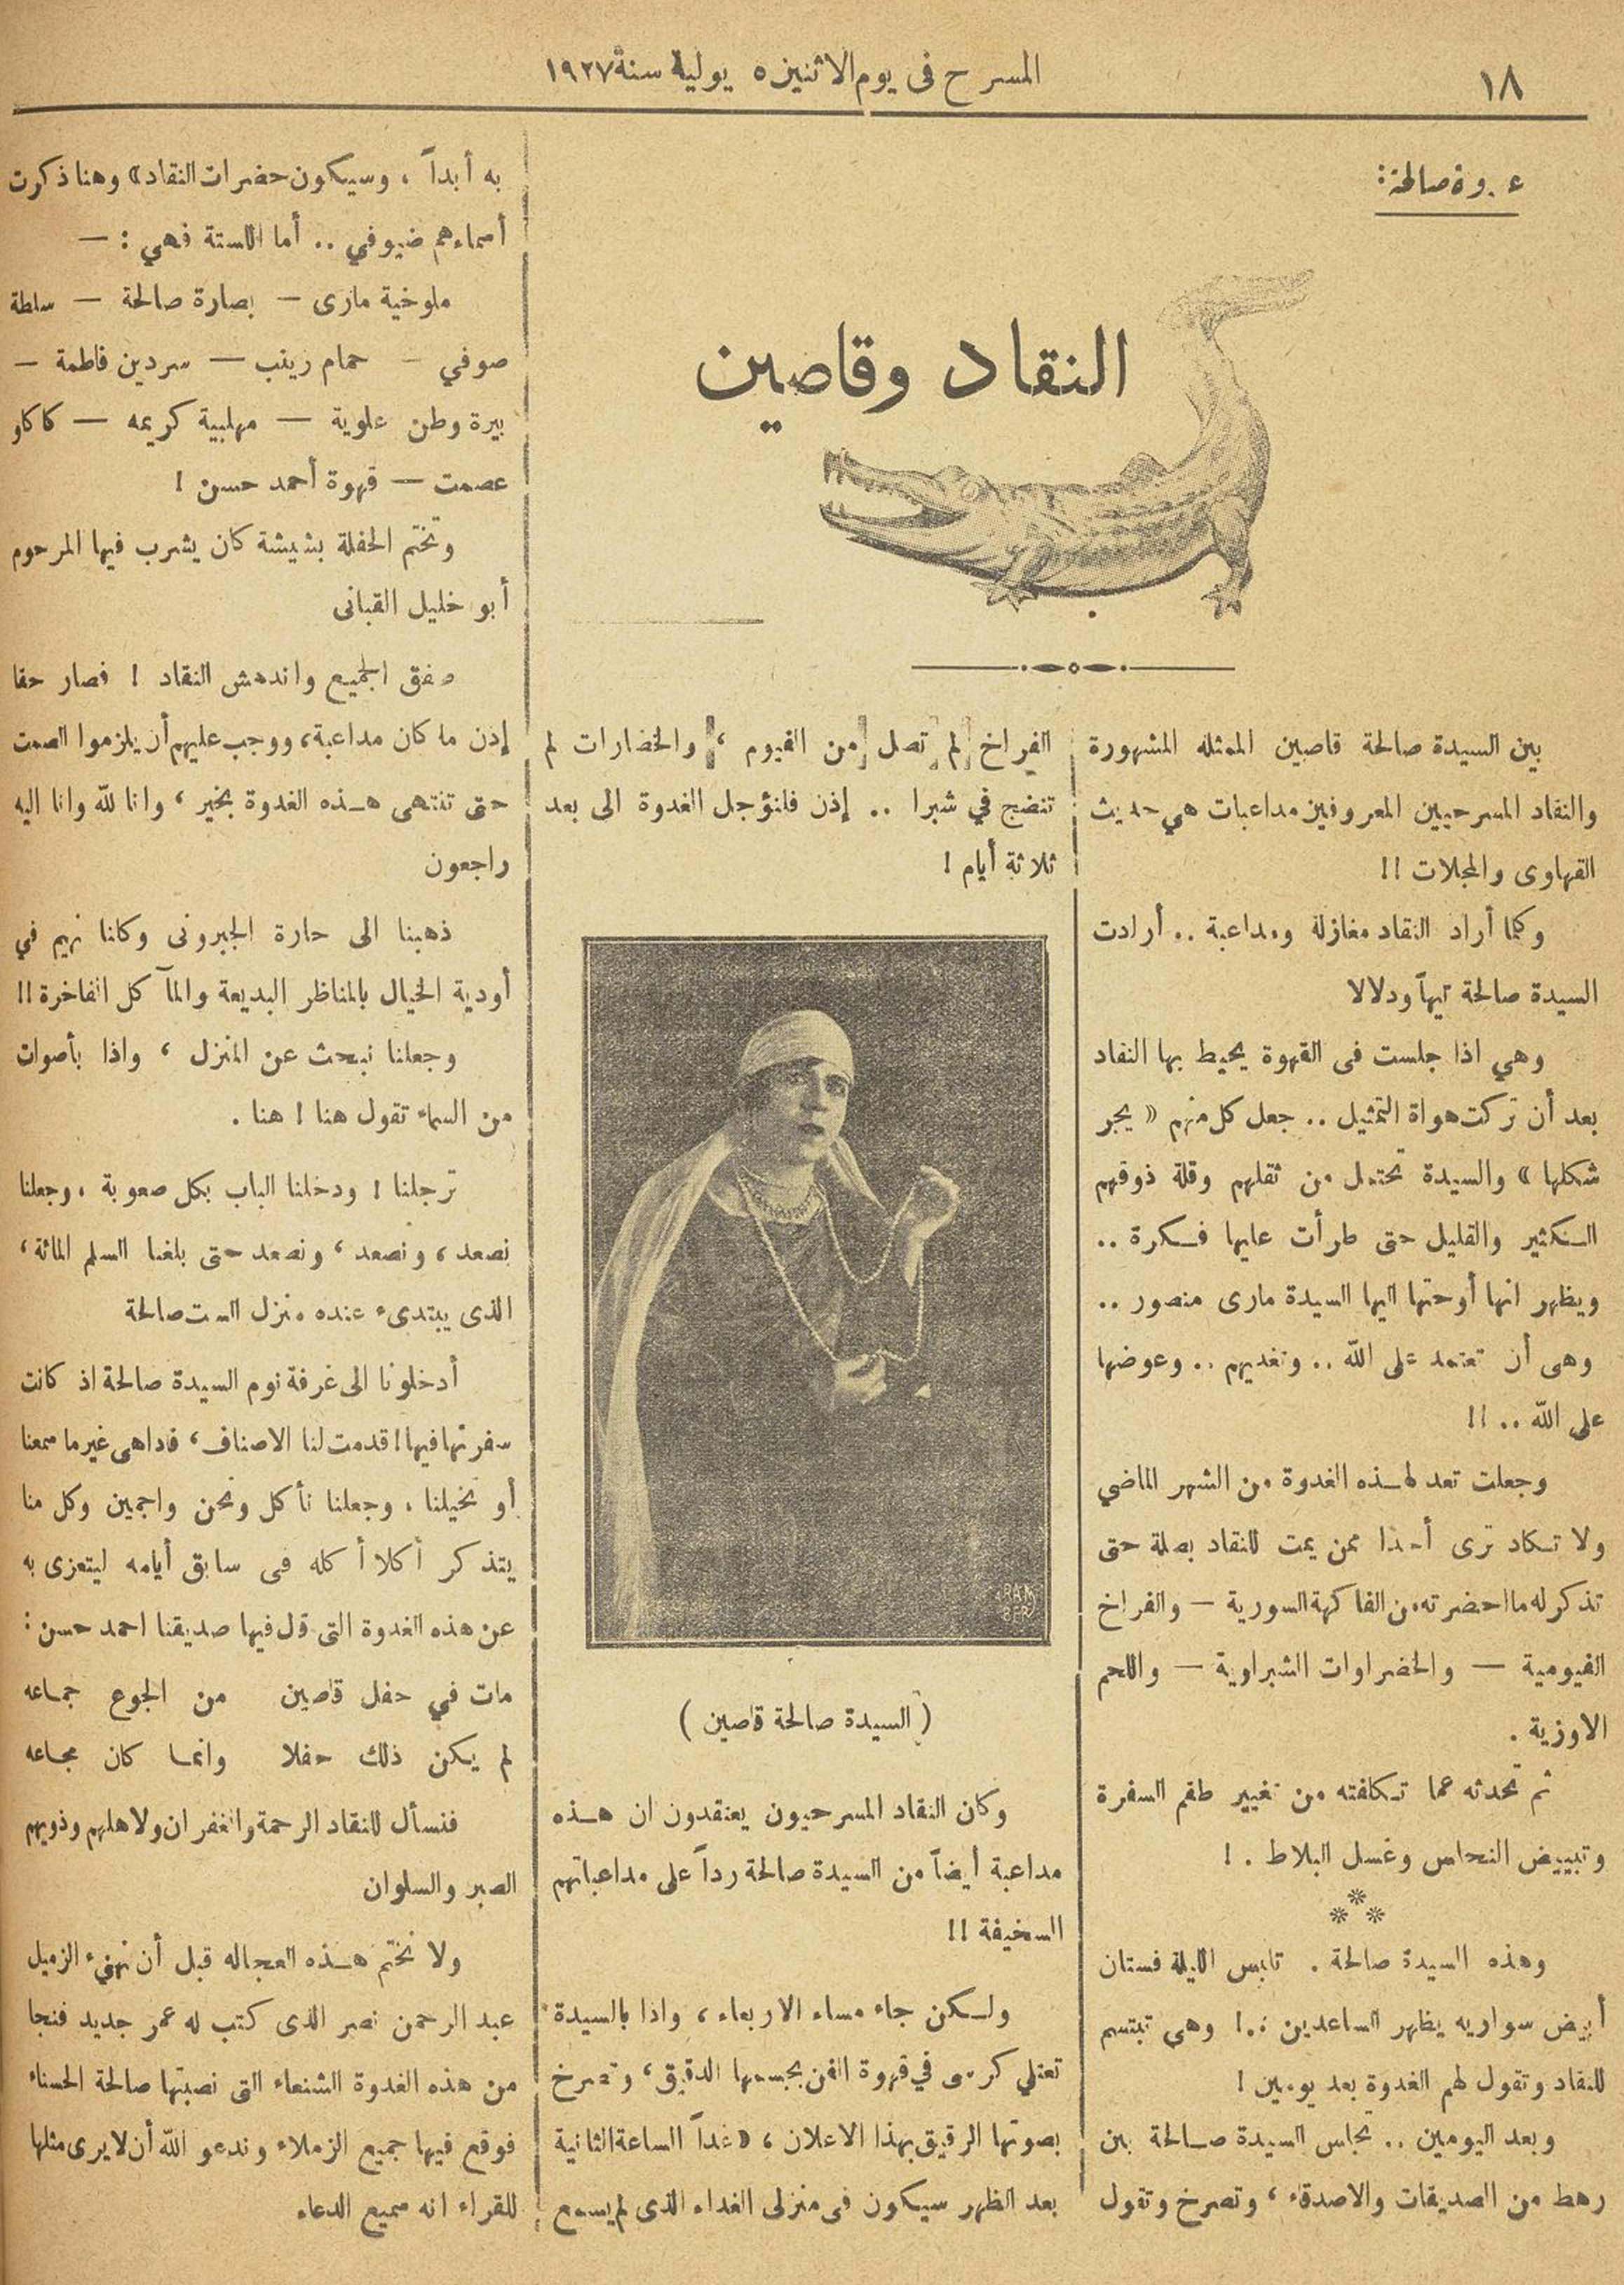 ١٨
المسرح فى يوم الاثنين ٥ يولية سنة ١٩٢٧
عزومة صالحة:
النقاد وقاصين
بين السيدة صالحة قاصين الممثله المشهورة
والنقاد المسرحيين المعروفين مداعبات هي حديث
القهاوى والمجلات !!
وكما أراد النقاد مغازلة ومداعبة .. أرادت
السيدة صالحة تيهاً ودلالا
وهي اذا جلست فى القهوة يحيط بها النقاد
بعد أن تركت هواة التمثيل .. جعل كل منهم « يجر
شكلها » والسيدة تحتمل من ثقلهم وقلة ذوقهم
الكثير والقليل حتى طرأت عليها فكرة ..
ويظهر انها أوحتها اليها السيدة مارى منصور ..
وهى أن تعتمد على الله .. وتغديهم .. وعوضها
على الله .. !!
وجعلت تعد لهذه الغدوة من الشهر الماضي
ولا تكاد ترى أحدا ممن يمت للنقاد بصلة حتى
تذكر له ما احضرته من الفاكهة السورية — والفراخ
الفيومية — والخضراوات الشبراوية — واللحم
الاوزية .
ثم تحدثه عما تكلفته من تغيير طقم السفرة
وتبييض النحاس وغسل البلاط . !
***
وهذه السيدة صالحة . تلبس الليلة فستان
أبيض سواريه يظهر الساعدين ..! وهى تبتسم
للنقاد وتقول لهم الغدوة بعد يومين !
وبعد اليومين .. تجلس السيدة صالحة بين
رهط من الصديقات والاصدقاء ، وتصرخ وتقول
الفراخ لم تصل من الفيوم ، والخضارات لم
تنضج في شبرا .. إذن فلنؤجل الغدوة الى بعد
ثلاثة أيام !
( السيدة صالحة قاصين )
وكان النقاد المسرحيون يعتقدون ان هذه
مداعبة أيضاً من السيدة صالحة رداً على مداعباتهم
السخيفة !!
ولكن جاء مساء الاربعاء ، واذا بالسيدة
تعتلي كرسى في قهوة الفن بجسمها الدقيق ، وتصرخ
بصوتها الرقيق بهذا الاعلان ، «غداً الساعة الثانية
بعد الظهر سيكون فى منزلى الغداء الذى لم يسمع
به أبداً ، وسيكون حضرات النقاد» وهنا ذكرت
أسماءهم ضيوفي .. أما اللستة فهي : —
ملوخية مارى — بصارة صالحة — سلطة
صوفي — حمام زينب — سردين فاطمة —
بيرة وطن علوية — مهلبية كريمه — كاكاو
عصمت — قهوة أحمد حسن !
وتختم الحفلة بشيشة كان يشرب فيها المرحوم
أبو خليل القبانى
صفق الجميع واندهش النقاد ! فصار حقا
إذن ما كان مداعبة، ووجب عليهم أن يلزموا الصمت
حتى تنتهى هذه الغدوة بخير ، وانا لله وانا اليه
راجعون
ذهبنا الى حارة الجبرونى وكانا نهيم في
أودية الخيال بالمناظر البديعة والمآكل الفاخرة !!
وجعلنا نبحث عن المنزل ، واذا بأصوات
من السماء تقول هنا ! هنا .
ترجلنا ! ودخلنا الباب بكل صعوبة ، وجعلنا
نصعد ، ونصعد ، ونصعد حتى بلغنا السلم المائة ،
الذى يبتدىء عنده منزل الست صالحة
أدخلونا الى غرفة نوم السيدة صالحة اذ كانت
سفرتها فيها ! قدمت لنا الاصناف ، فاذا هى غير ما سمعنا
أو تخيلنا ، وجعلنا نأكل ونحن واجمين وكل منا
يتذكر أكلا أكله فى سابق أيامه ليتعزى به
عن هذه الغدوة التى قل فيها صديقنا احمد حسن :
مات في حفل قاصين من الجوع جماعه
لم يكن ذلك حفلا وانما كان مجاعه
فنسأل للنقاد الرحمة والغفران ولاهلهم وذويهم
الصبر والسلوان
ولا نختم هذه العجاله قبل أن نهنىء الزميل
عبد الرحمن نصر الذى كتب له عمر جديد فنجا
من هذه الغدوة الشنعاء التى نصبتها صالحة الحسناء
فوقع فيها جميع الزملاء وندعو الله أن لا يرى مثلها
للقراء انه سميع الدعاء